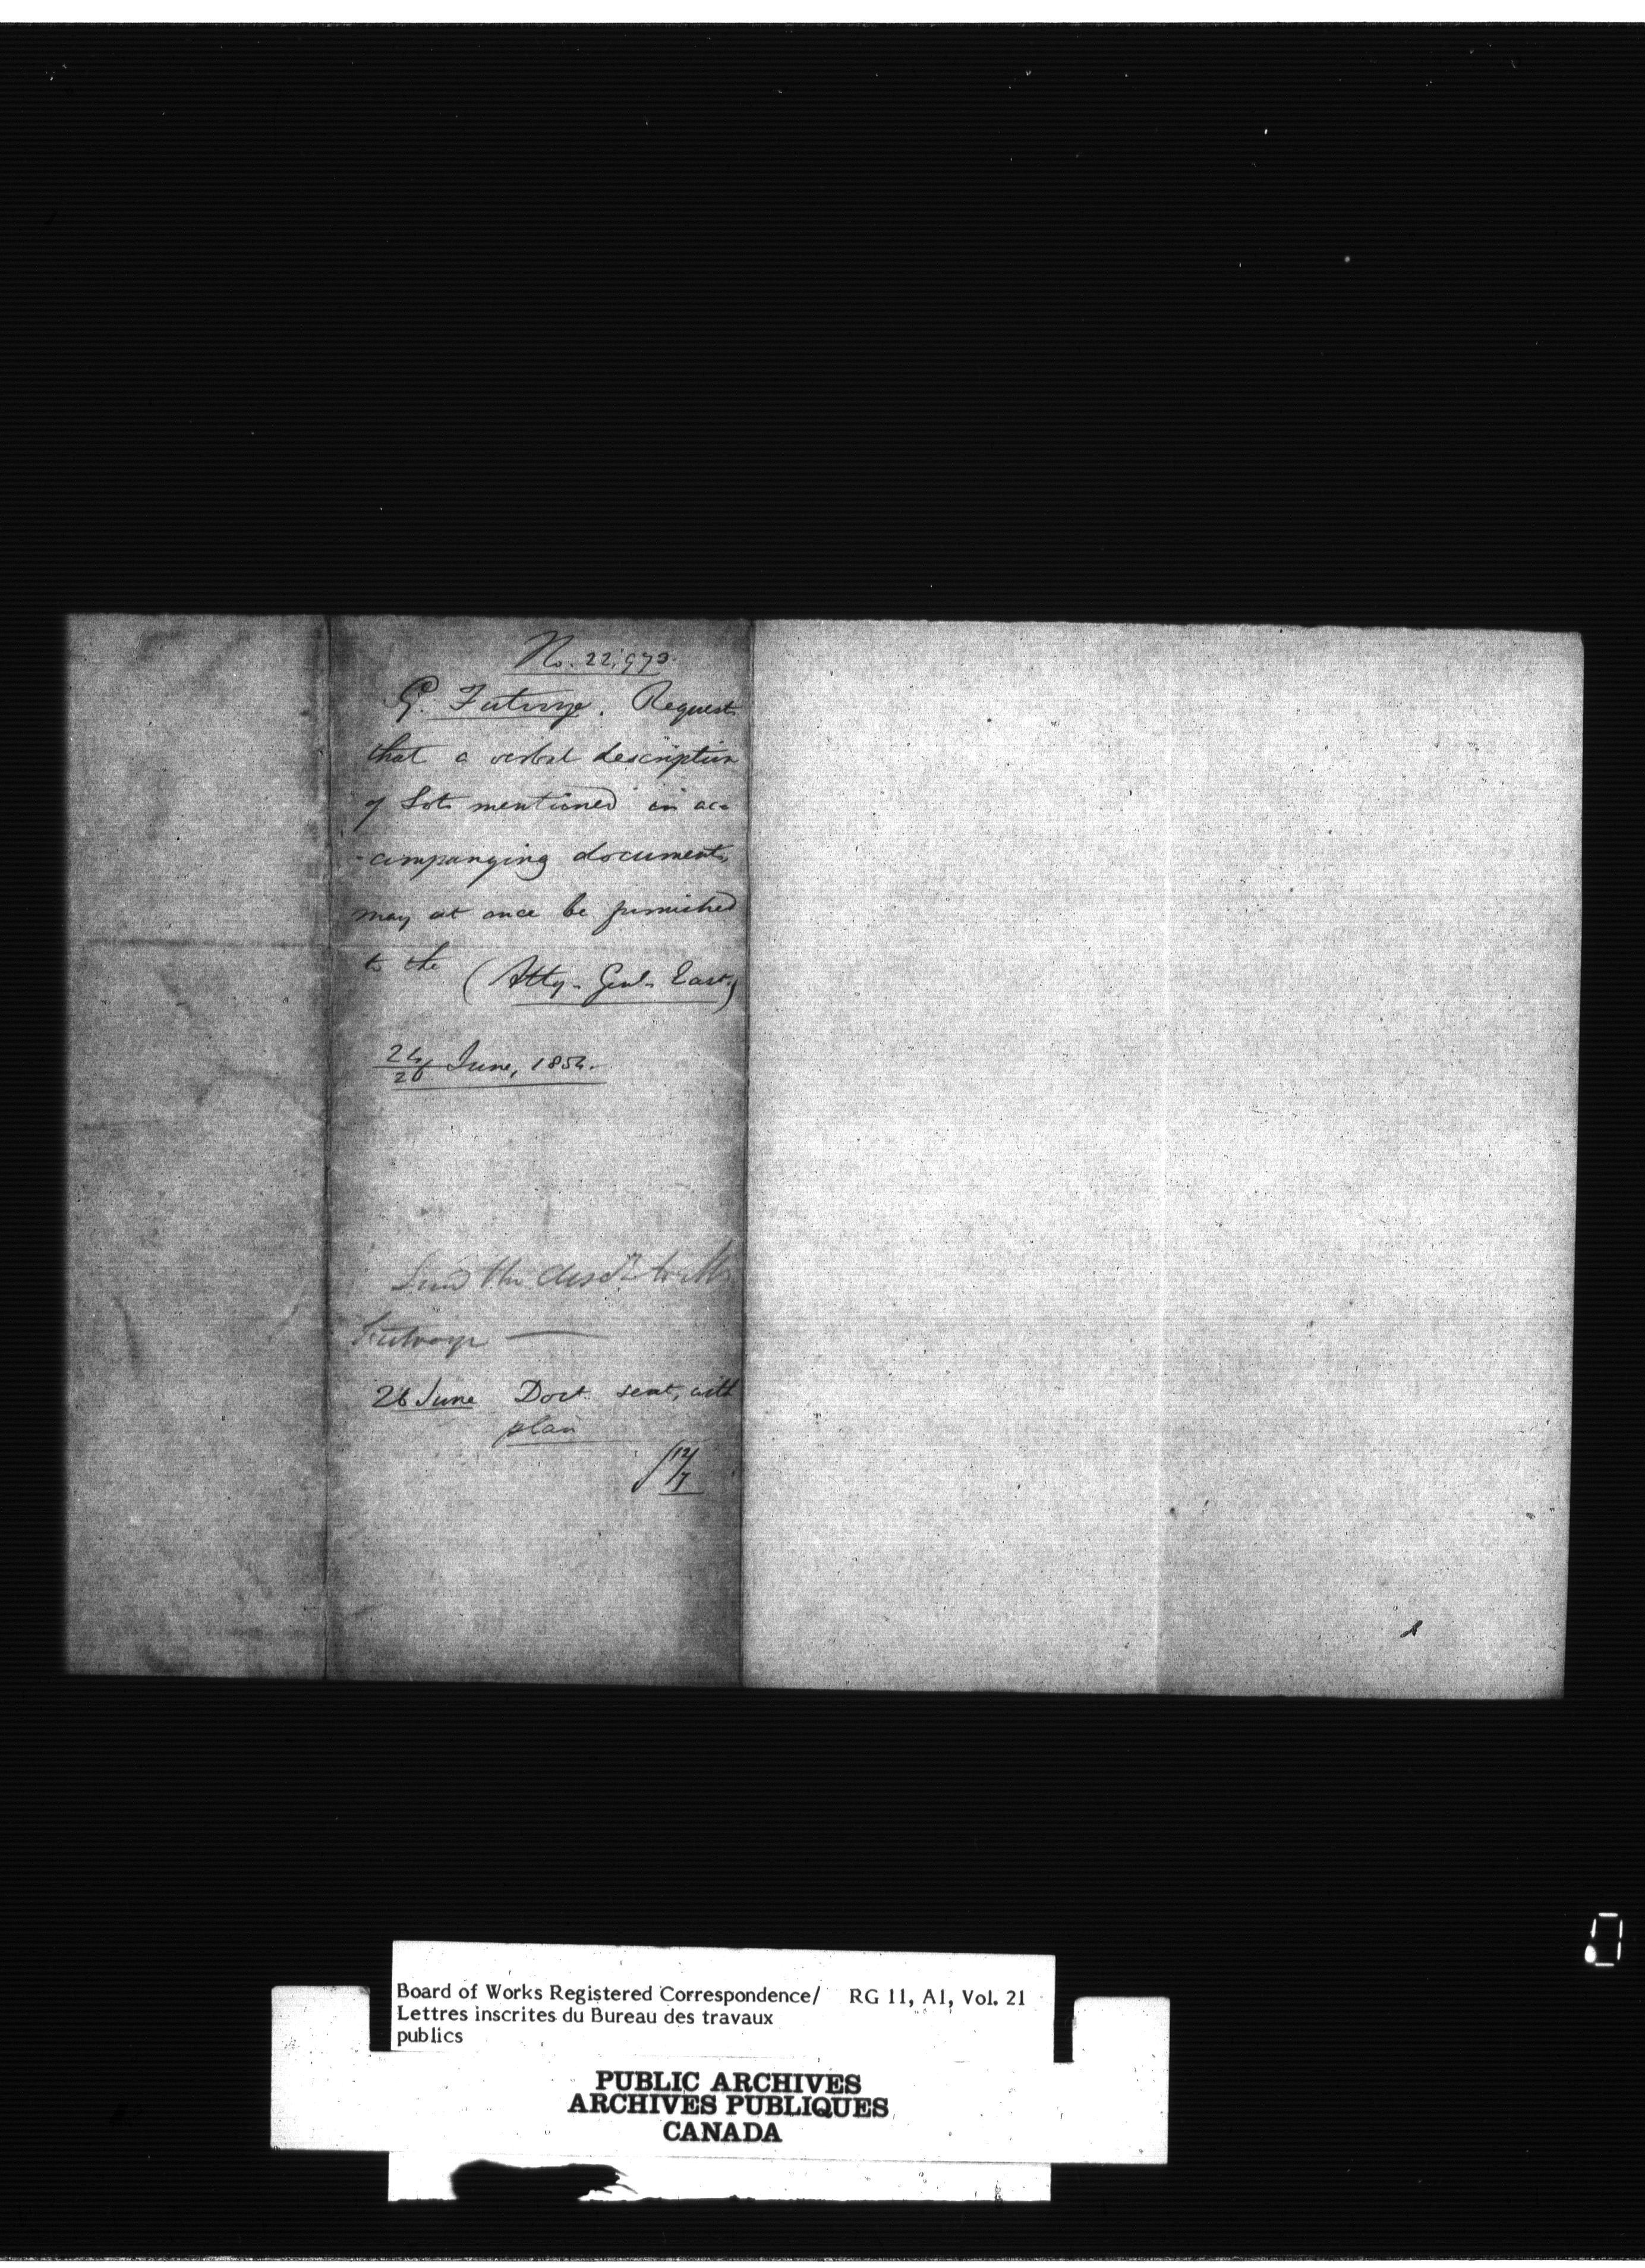 No. 22,973.
G. Futvoye. Requests
that a verbal description
of Lots mentioned in ac=
-companying documents,
may at once be furnished
to the (Atty- Genl- East.)
24/26 June, 1854.
Send the desc.n to Mr
Futvoye —
26 June Doct. sent, with
plan
12/7
Board of Works Registered Correspondence/ RG 11, A1, Vol. 21
Lettres inscrites du Bureau des travaux
publics
PUBLIC ARCHIVES
ARCHIVES PUBLIQUES
CANADA